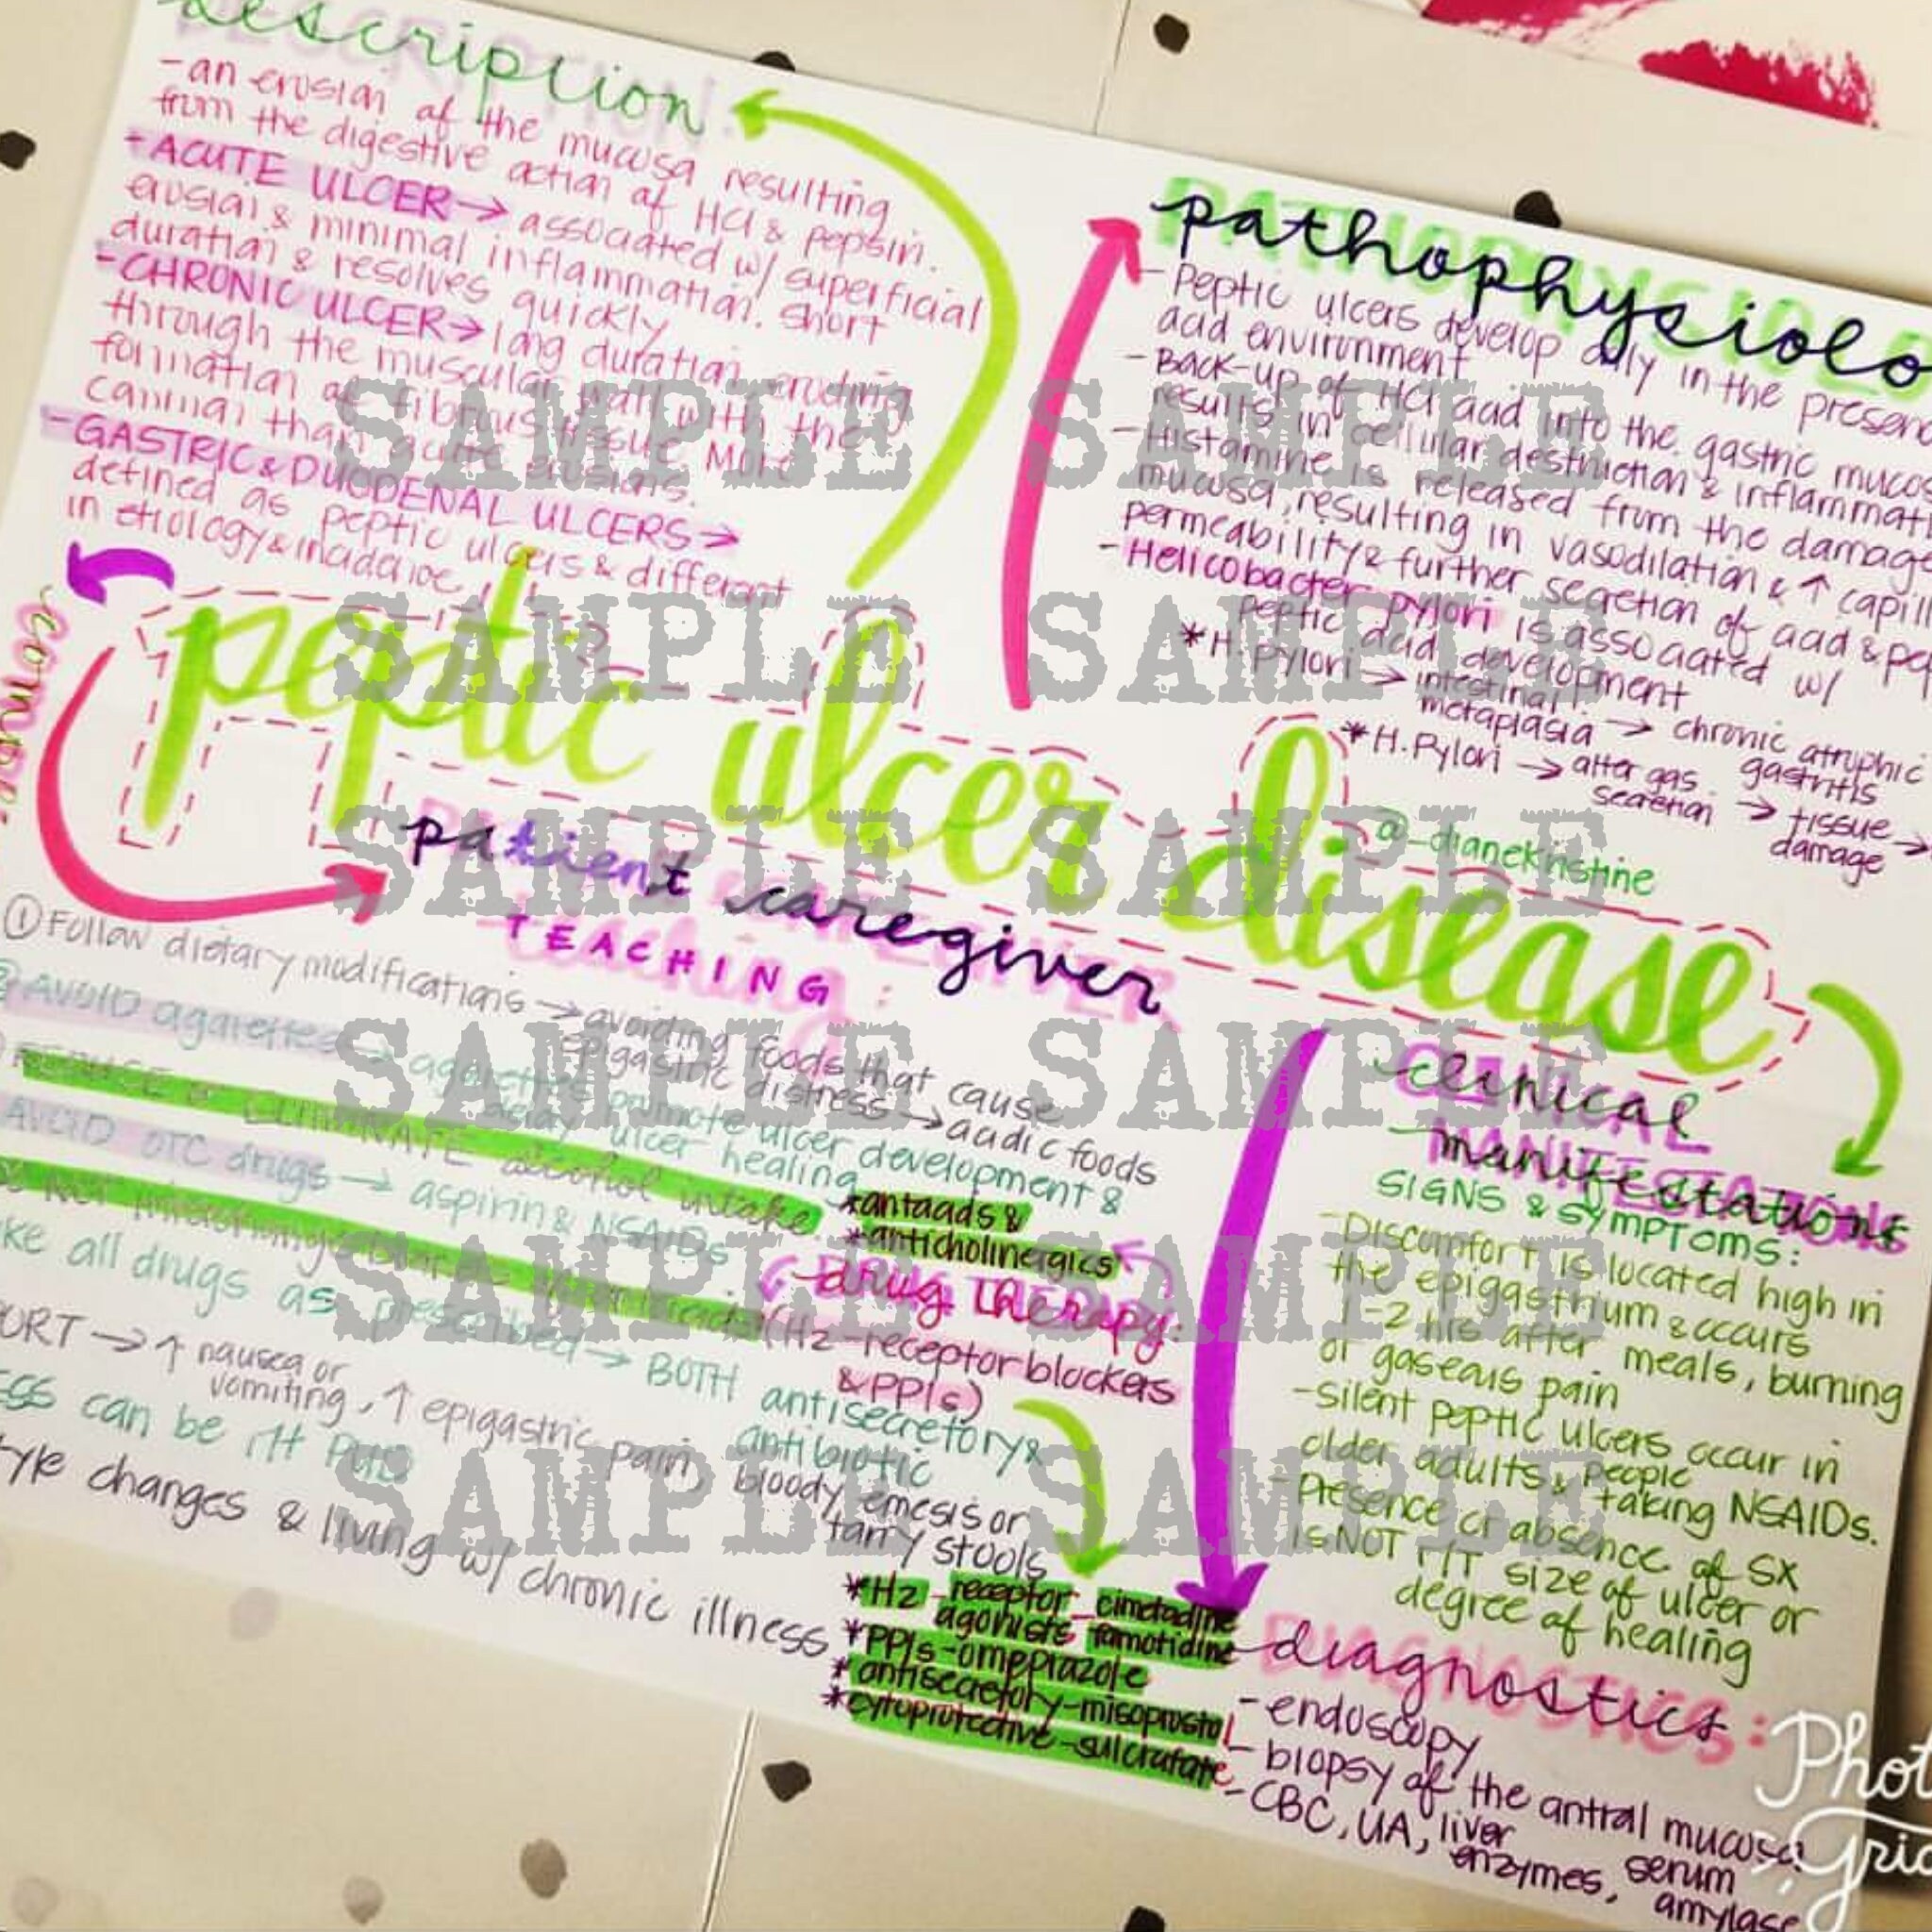 description
-an erosion of the mucosa resulting
from the digestive action of HCl & pepsin.
-ACUTE ULCER→ associated w/ superficial
erosion & minimal inflammation. Short
duration & resolves quickly
-CHRONIC ULCER→ long duration, eroding
through the muscular wall with the
formation of fibrous tissue More
common than acute erosions.
-GASTRIC & DUODENAL ULCERS→
defined as peptic ulcers & different
in etiology & incidence
pathophysiolo
-Peptic ulcers develop only in the presen
acid environment
-Back-up of HCl acid into the gastric mucos
results in cellular destruction & inflammati
-Histamine is released from the damage
mucosa, resulting in vasodilation & ↑ capill
permeability & further secretion of acid & pep
-Helicobacter pylori is associated w/
peptic acid development
*H. pylori → intestinal
metaplasia → chronic atrophic
gastritis
*H. Pylori → alter gas.
secretion → tissue →
damage
peptic ulcer disease
@_dianekristine
patient caregiver
TEACHING:
①Follow dietary modifications → avoiding foods that cause
epigastric distress → acidic foods
②AVOID cigarettes → cigarettes promote ulcer development &
delay ulcer healing
REDUCE or ELIMINATE alcohol intake
AVOID OTC drugs → aspirin & NSAIDs
NOT
ke all drugs as prescribed → BOTH antisecretory &
antibiotic
PORT → ↑ nausea or
vomiting, ↑ epigastric pain, bloody emesis or
tarry stools
ess can be r/t PUD
tyle changes & living w/ chronic illness
*antacids &
*anticholinergics
drug therapy:
(H2-receptor blockers
& PPIs)
*H2 receptor - cimetadine
agonists famotidine
*PPIs - omeprazole
*antisecretory - misoprostol
*cytoprotective - sulcrafate
clinical
manifestations
SIGNS & SYMPTOMS:
-Discomfort is located high in
the epigastrium & occurs
1-2 hrs after meals, burning
or gaseous pain
-Silent peptic ulcers occur in
older adults & people
taking NSAIDs.
-Presence or absence of SX
is NOT r/t size of ulcer or
degree of healing
diagnostics:
-endoscopy
-biopsy of the antral mucosa
-CBC, UA, liver
enzymes, serum
amylase
SAMPLE SAMPLE
SAMPLE SAMPLE
SAMPLE SAMPLE
SAMPLE SAMPLE
SAMPLE SAMPLE
SAMPLE SAMPLE
Phot
Grid